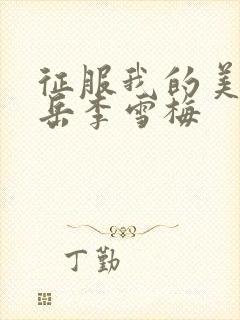 征服我的美
岳李雪梅
丁勤